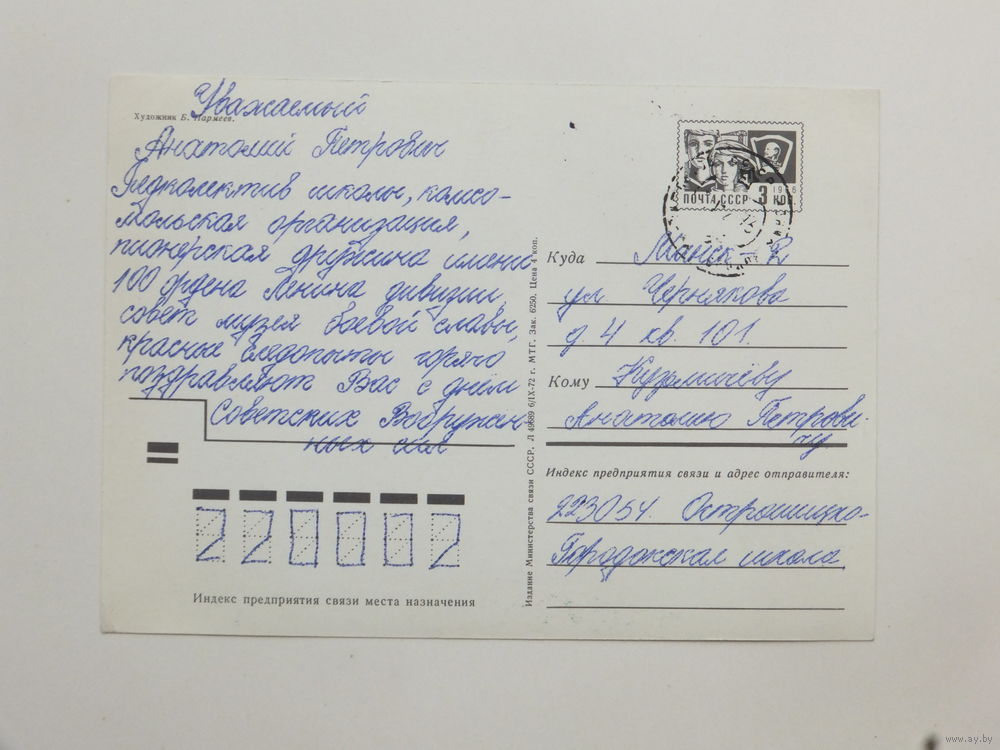 Уважаемый
Художник Б. Пармеев.
Анатолий Петрович
Педколектив школы, комсо-
мольская организация,
пионерская дружина имени
100 ордена Ленина дивизии,
совет музея боевой славы,
красные следопыты горячо
поздравляют Вас с днём
Советских Вооружен
ных сил
Индекс предприятия связи места назначения
220002
Издание Министерства связи СССР. Л 49689 6/IX-72 г. МТГ. Зак. 6250. Цена 4 коп.
ПОЧТА СССР 3 КОП. 1966
Куда Минск - 2
ул Чернякова
д. 4 кв. 101.
Кому Кузьмичёву
Анатолию Петрови-
чу
Индекс предприятия связи и адрес отправителя:
223054. Острошицко-
Городокская школа
www.ay.by